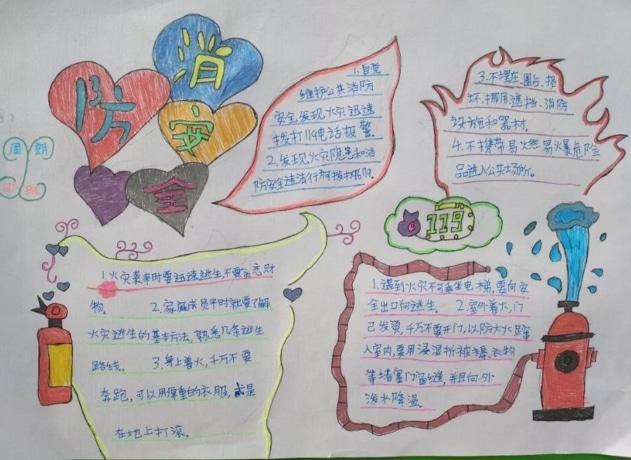 消
防
安
全
1.自觉
维护公共消防
安全,发现火灾迅速
拨打119电话报警
2.发现火灾隐患和消
防安全违法行为
3.不埋压、圈占、损
坏、挪用、遮挡、消防
设施和器材。
4.不携带易火燃易爆危险
品进入公共场所。
周朗
119
1.火灾袭来时要迅速逃生,不要贪恋财
物。 2.家庭成员平时就要了解
火灾逃生的基本方法,熟悉几条逃生
路线。 3.身上着火,千万不要
奔跑,可以用厚重的衣服,或是
在地上打滚。
1.遇到火灾不可乘坐电梯,要向安
全出口向逃生。 2.室外着火,门
已发烫,千万不要开门,以防大火蹿
入室内,要用浸湿
等堵塞门窗缝,并且向外
泼水降温